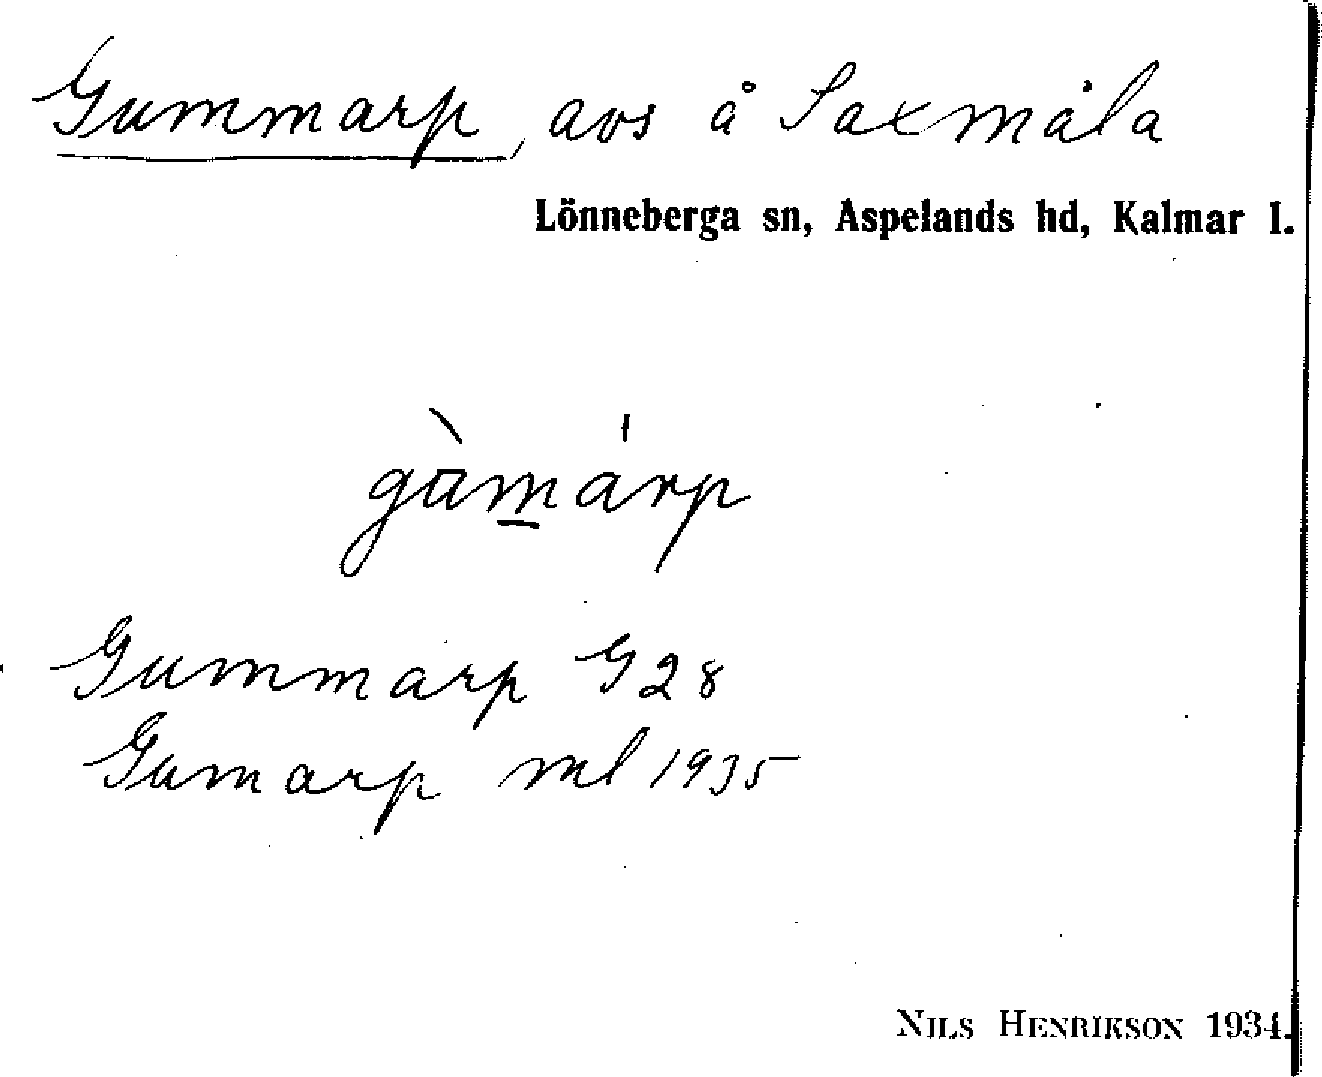 Gummarp, avs å Saxmåla
Lönneberga sn, Aspelands hd, Kalmar l.
gàmárp
Gummarp G 28
Gumarp ml 1935
NILS HENRIKSON 1934.